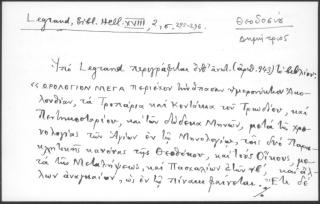 Legrand, Bibl. Hell. XVIII, 2, σ. 295-296.
Θεοδοσίου
Δημήτριος
Ὑπὸ Legrand περιγράφεται ὑπ' ἀριθ. 943) τὸ βιβλίον:
«ΩΡΟΛΟΓΙΟΝ ΜΕΓΑ περιέχον τὴν ἅπασαν ἡμερονύκτιον Ἀκο-
λουθίαν, τὰ Τροπάρια, καὶ Κοντάκια τοῦ Τριῳδίου, καὶ
Πεντηκοσταρίου, καὶ τῶν δώδεκα Μηνῶν, μετὰ τῆς χρο-
νολογίας τῶν Ἁγίων ἐν τῷ Μηνολογίῳ, τοὺς δύο Παρα-
κλητικοὺς κανόνας τῆς Θεοτόκου, καὶ τοὺς Οἴκους, με-
τὰ τῆς Μεταλήψεως, καὶ Πασχαλίου ἐτῶν, καὶ ἄλ-
λων ἀναγκαίων, ὡς ἐν τῷ πίνακι φαίνεται.